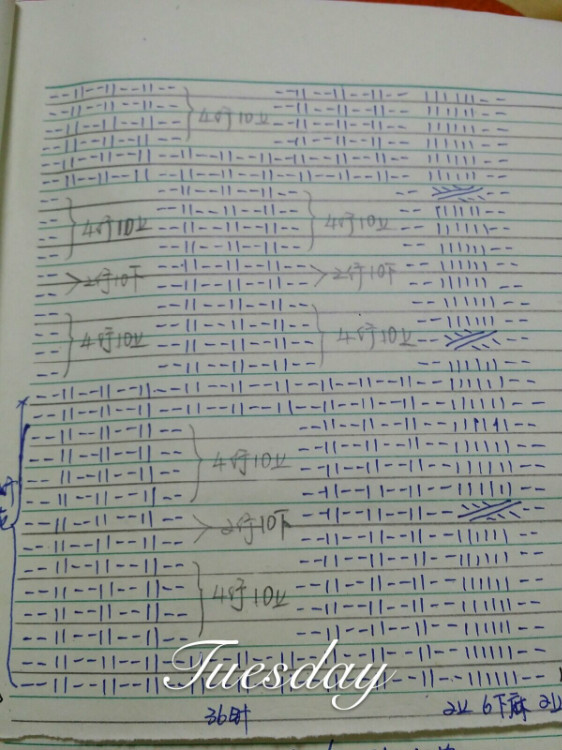 4行10上
4行10上 4行10上
2行10下 2行10下
4行10上 4行10上
4行10上
2行10下
4行10上
Tuesday
36针 2上 6下麻 2上